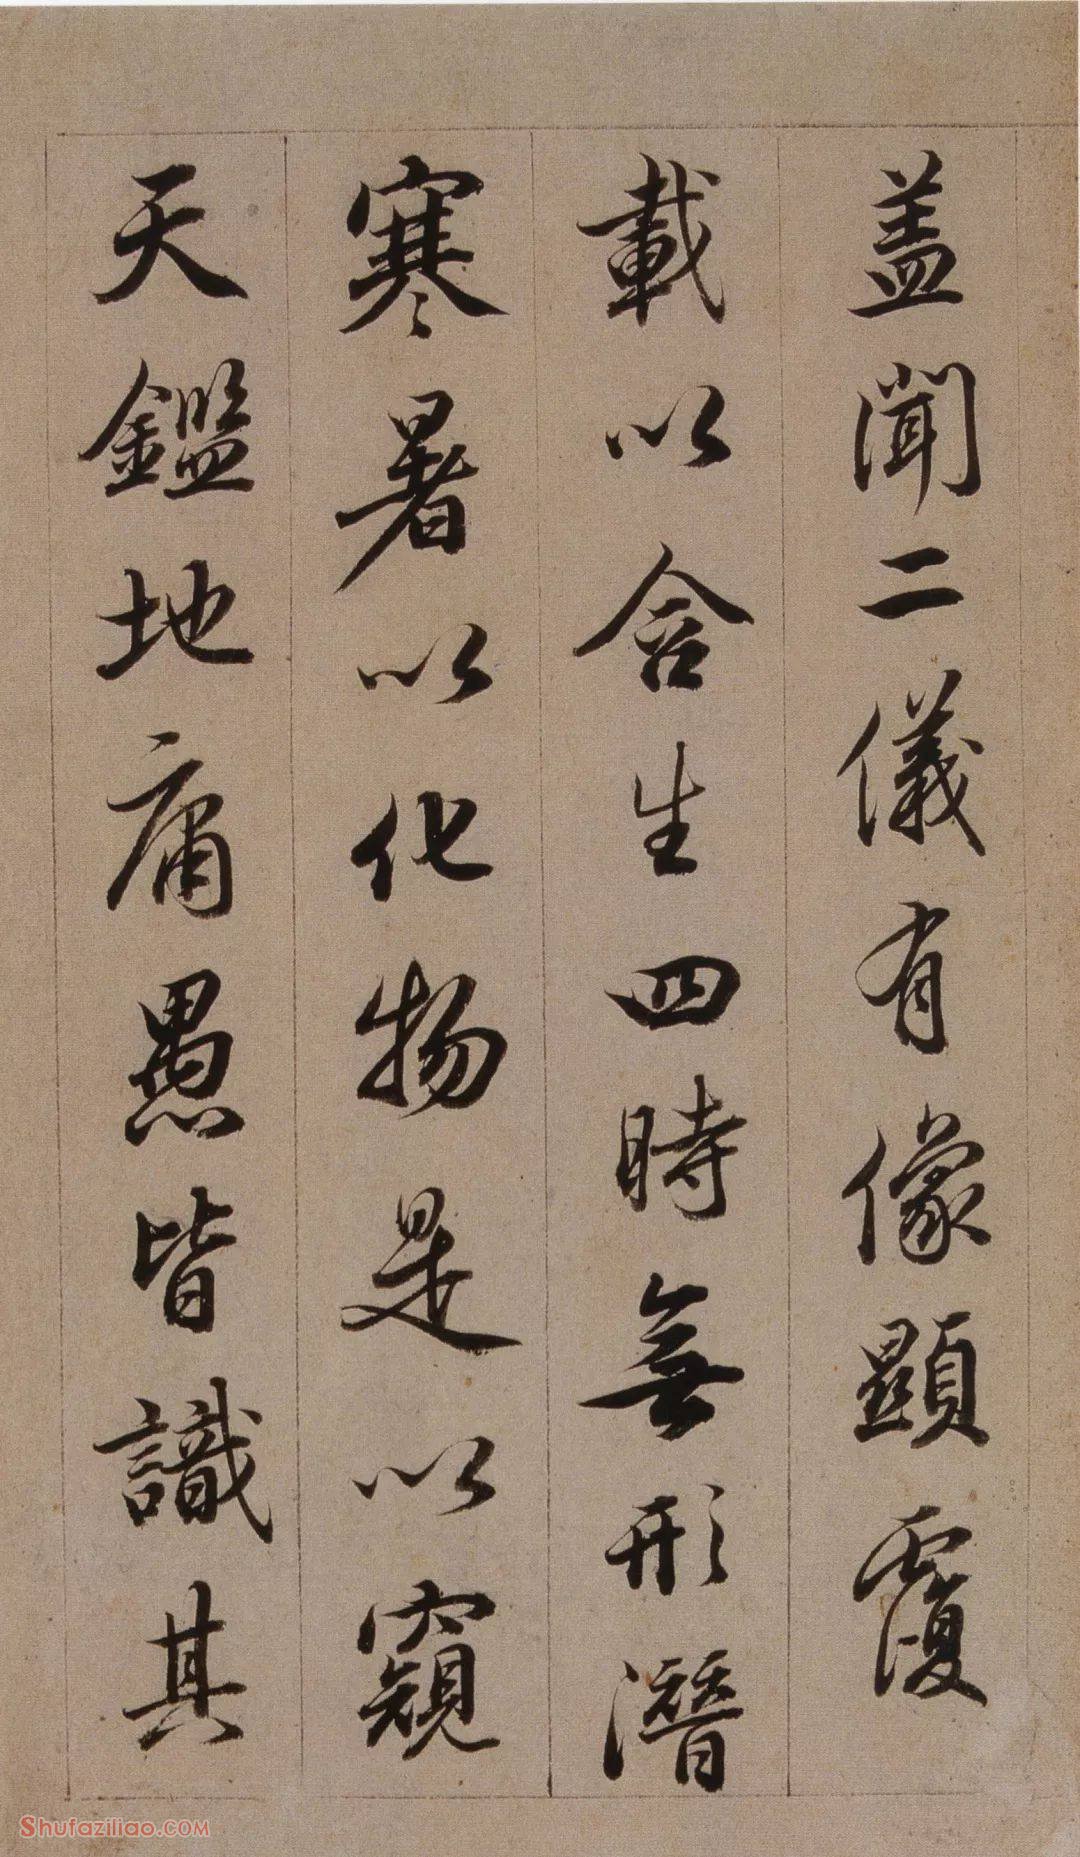 蓋聞二儀有像顯覆
載以含生四時無形潛
寒暑以化物是以窺
天鑑地庸愚皆識其
Shufaziliao.COM